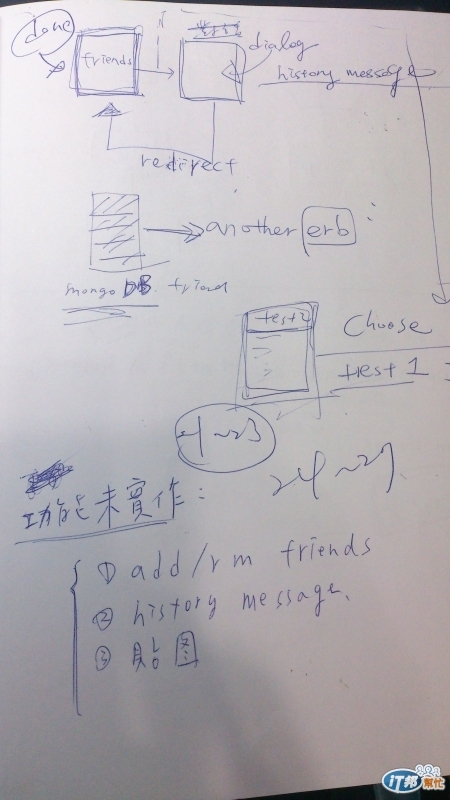 done
friends
N
dialog
history message
redirect
another erb
mongo DB friend
test2
Choose
test 1
21~23
24~29
功能未實作:
① add/rm friends
② history message.
③ 貼图
iT邦幫忙